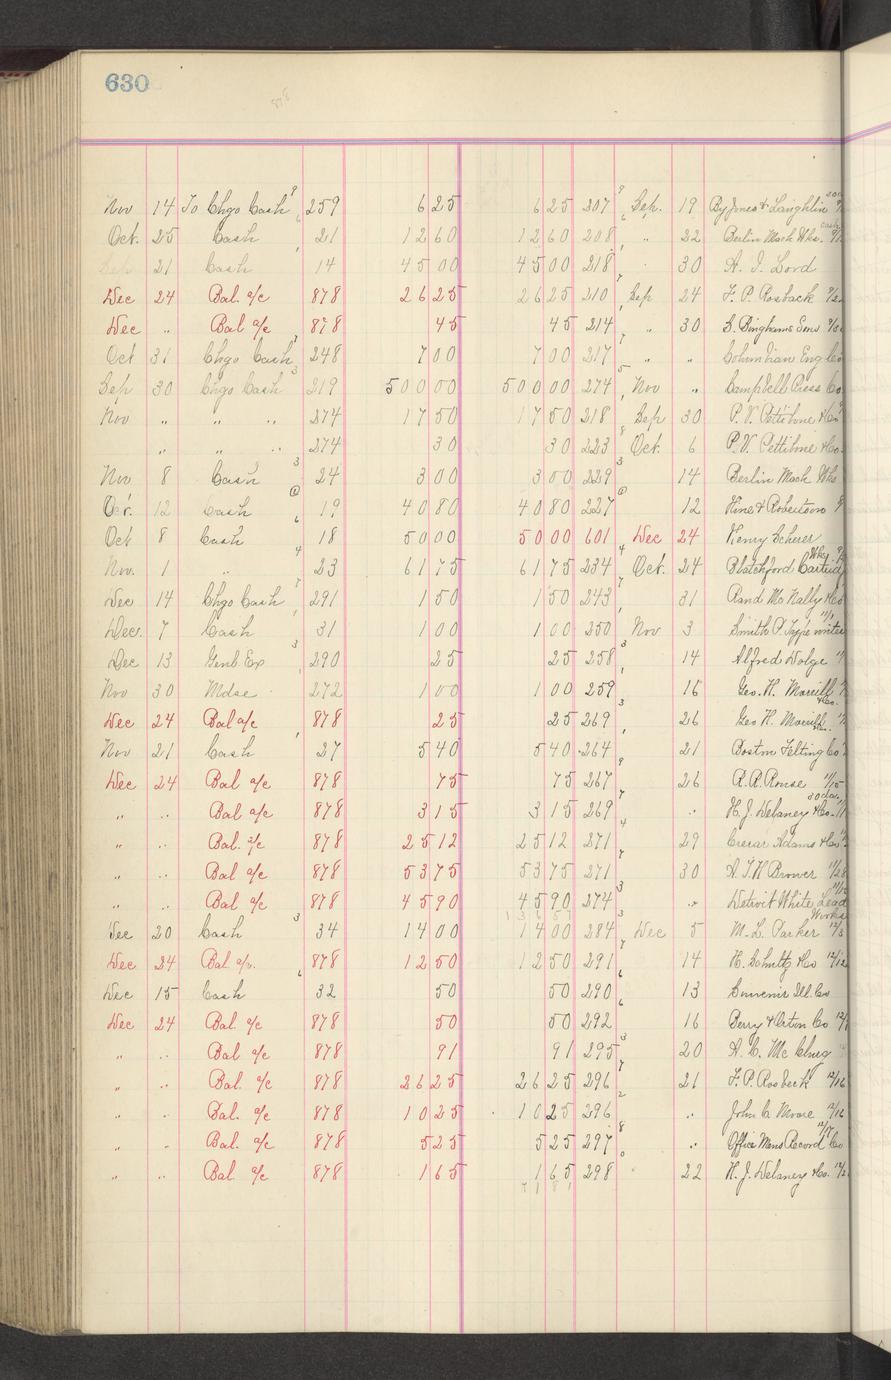 630
878
Nov 14 To Chgo Cash 259 6 25 6 25 207 Sep. 19 By Jones & Laughlin
Oct. 25 Cash 21 12 60 12 60 208 " 22 Berlin Mach Wks.
Sep 21 Cash 14 45 00 45 00 218 30 A. I. Lord
Dec 24 Bal. a/c 878 26 25 26 25 210 Sep 24 F. P. Rosback
Dec " Bal a/c 878 45 45 214 " 30 S. Binghams Sons
Oct 31 Chgo Cash 248 7 00 7 00 217 " " Columbian Eng Co
Sep 30 Chgo Cash 219 500 00 500 00 274 Nov " Campbell Press Co
Nov " " " 274 17 50 17 50 218 Sep 30 P. V. Pettibone & Co
" " " 274 30 30 223 Oct. 6 P. V. Pettibone & Co.
Nov 8 Cash 24 3 00 3 00 229 14 Berlin Mach Wks
Oct. 12 Cash 19 40 80 40 80 227 12 Hine & Robertson
Oct 8 Cash 18 50 00 50 00 601 Dec 24 Henry Scherer
Nov. 1 " 23 61 75 61 75 234 Oct. 24 Blatchford Cartridge Wks
Dec 14 Chgo Cash 291 1 50 1 50 243 31 Rand McNally & Co
Dec. 7 Cash 31 1 00 1 00 250 Nov 3 Smith P.
Dec 13 Genl Exp 290 25 25 258 14 Alfred Dolge
Nov 30 Mdse 272 1 00 1 00 259 16 Geo. H. Morrill & Co.
Dec 24 Bal a/c 878 25 25 269 26 Geo H. Morrill
Nov 21 Cash 27 5 40 5 40 264 21 Boston Felting Co
Dec 24 Bal a/c 878 75 75 267 26 R. R. Rouse 11/15
" " Bal a/c 878 3 15 3 15 269 " H. J. Delaney & Co.
" " Bal. a/c 878 25 12 25 12 271 29 Crerar Adams & Co
" " Bal a/c 878 53 75 53 75 271 30 A. T. H Brower 11/28
" " Bal a/c 878 45 90 45 90 274 " Detroit White Lead Works
Dec 20 Cash 34 14 00 14 00 284 Dec 5 M. L. Parker 12/3
Dec 24 Bal a/c. 878 12 50 12 50 291 14 H. Schultz & Co 12/12
Dec 15 Cash 32 50 50 290 13 Souvenir Ill. Co
Dec 24 Bal. a/c 878 50 50 292 16 Berry & Orton Co
" " Bal a/c 878 91 91 295 20 A. C. McClurg
" " Bal. a/c 878 26 25 26 25 296 21 F. P. Rosback 12/16
" " Bal. a/c 878 10 25 10 25 296 " John C Moore 12/16
" " Bal. a/c 878 5 25 5 25 297 " Office Mens Record Co 12/17
" " Bal a/c 878 1 65 1 65 298 22 H. J. Delaney & Co.